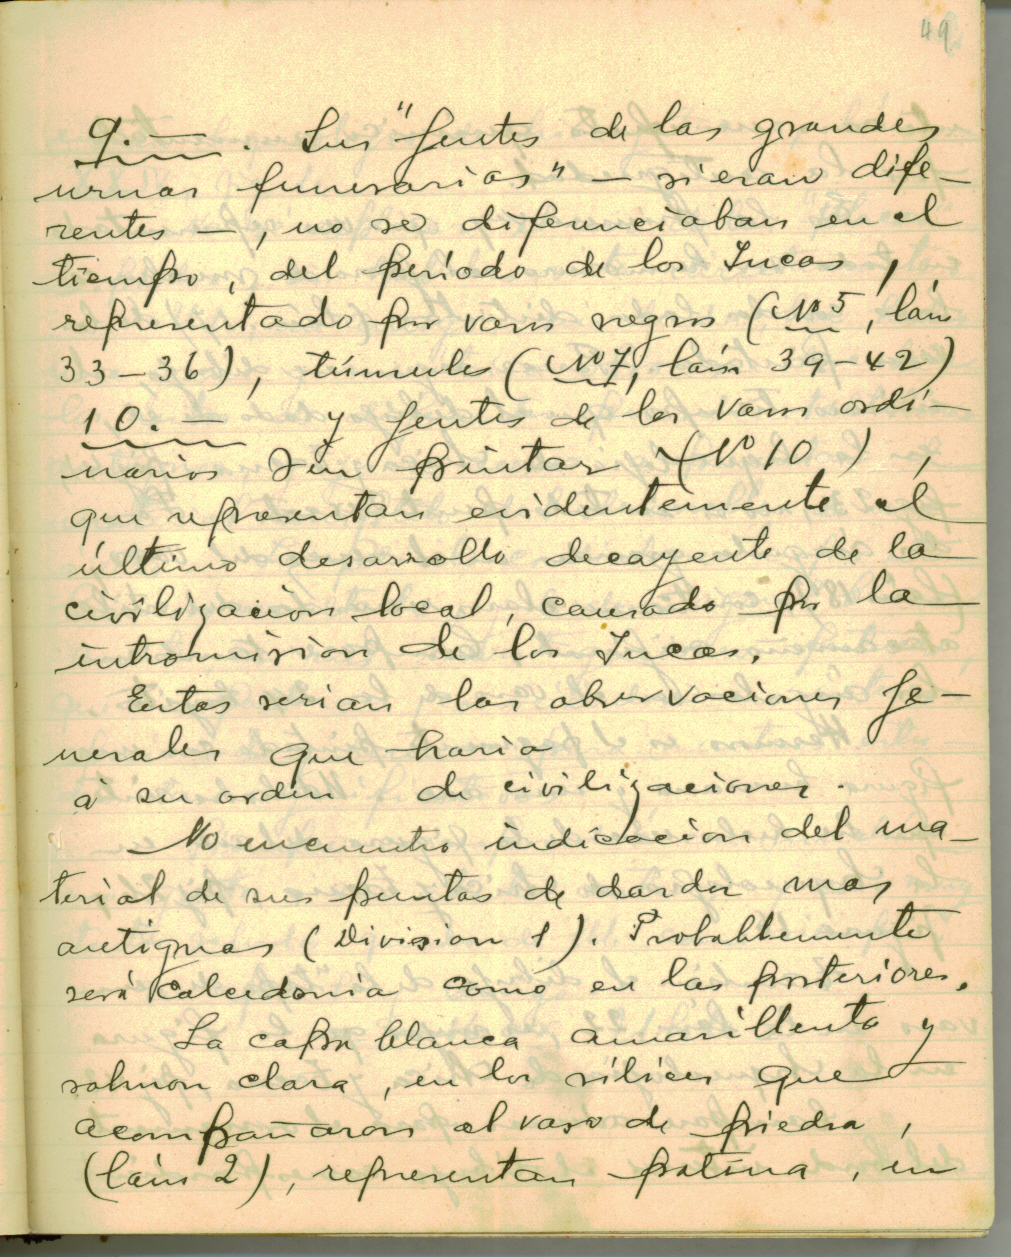 49
9.— . Sus "gentes de las grandes
urnas funerarias" — si eran dife-
rentes —, no se diferenciaban en el
tiempo, del período de los Incas,
representado por vasos negros (Nº 5, lám
33-36), túmulos (Nº 7, lám 39-42)
10.— y gentes de los vasos ordi-
narios sin pintar (Nº 10),
que representan evidentemente el
último desarrollo decayente de la
civilizacion local, causado por la
intromision de los Incas.
Estas serian las observaciones ge-
nerales que haria
á su orden de civilizaciones.
No encuentro indicacion del ma-
terial de sus puntas de dardos mas
antiguas (Division 1). Probablemente
será calcedonia como en las posteriores.
La capa blanca amarillenta y
salmon clara, en los sílices que
acompañaron el vaso de piedra,
(lám 2), representan patina, en